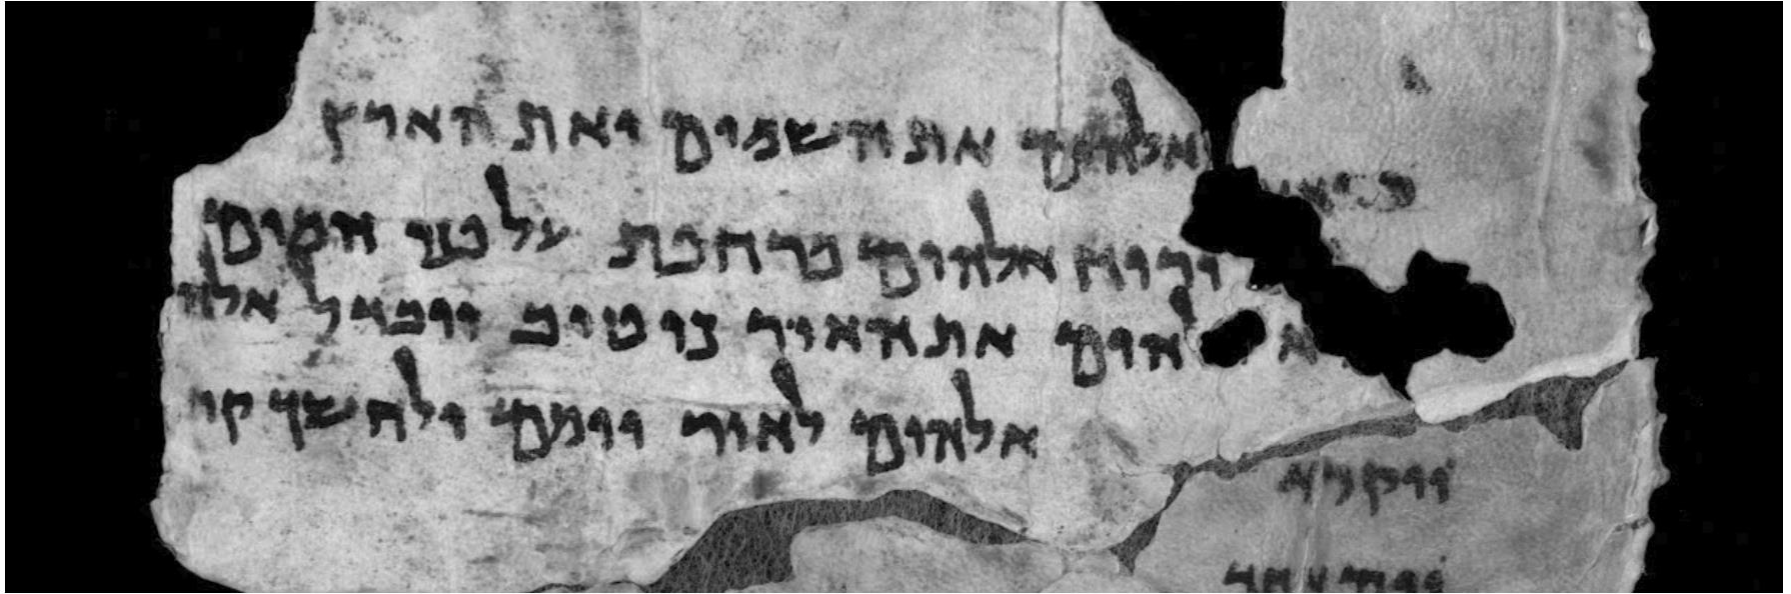 אלהים את השמים ואת הארץ
ורוח אלהים מרחפת על פני המים
אלהים את האור כי טוב ויבדל אלה
ויקרא אלהים לאור יומם ולחשך קר